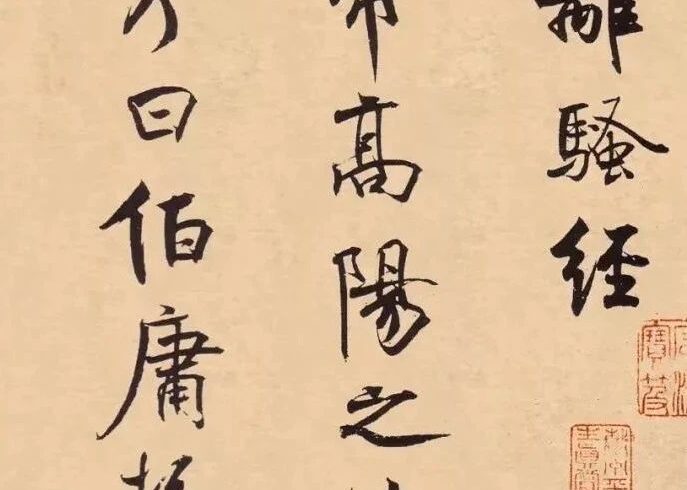 離騷經
帝高陽之
曰伯庸